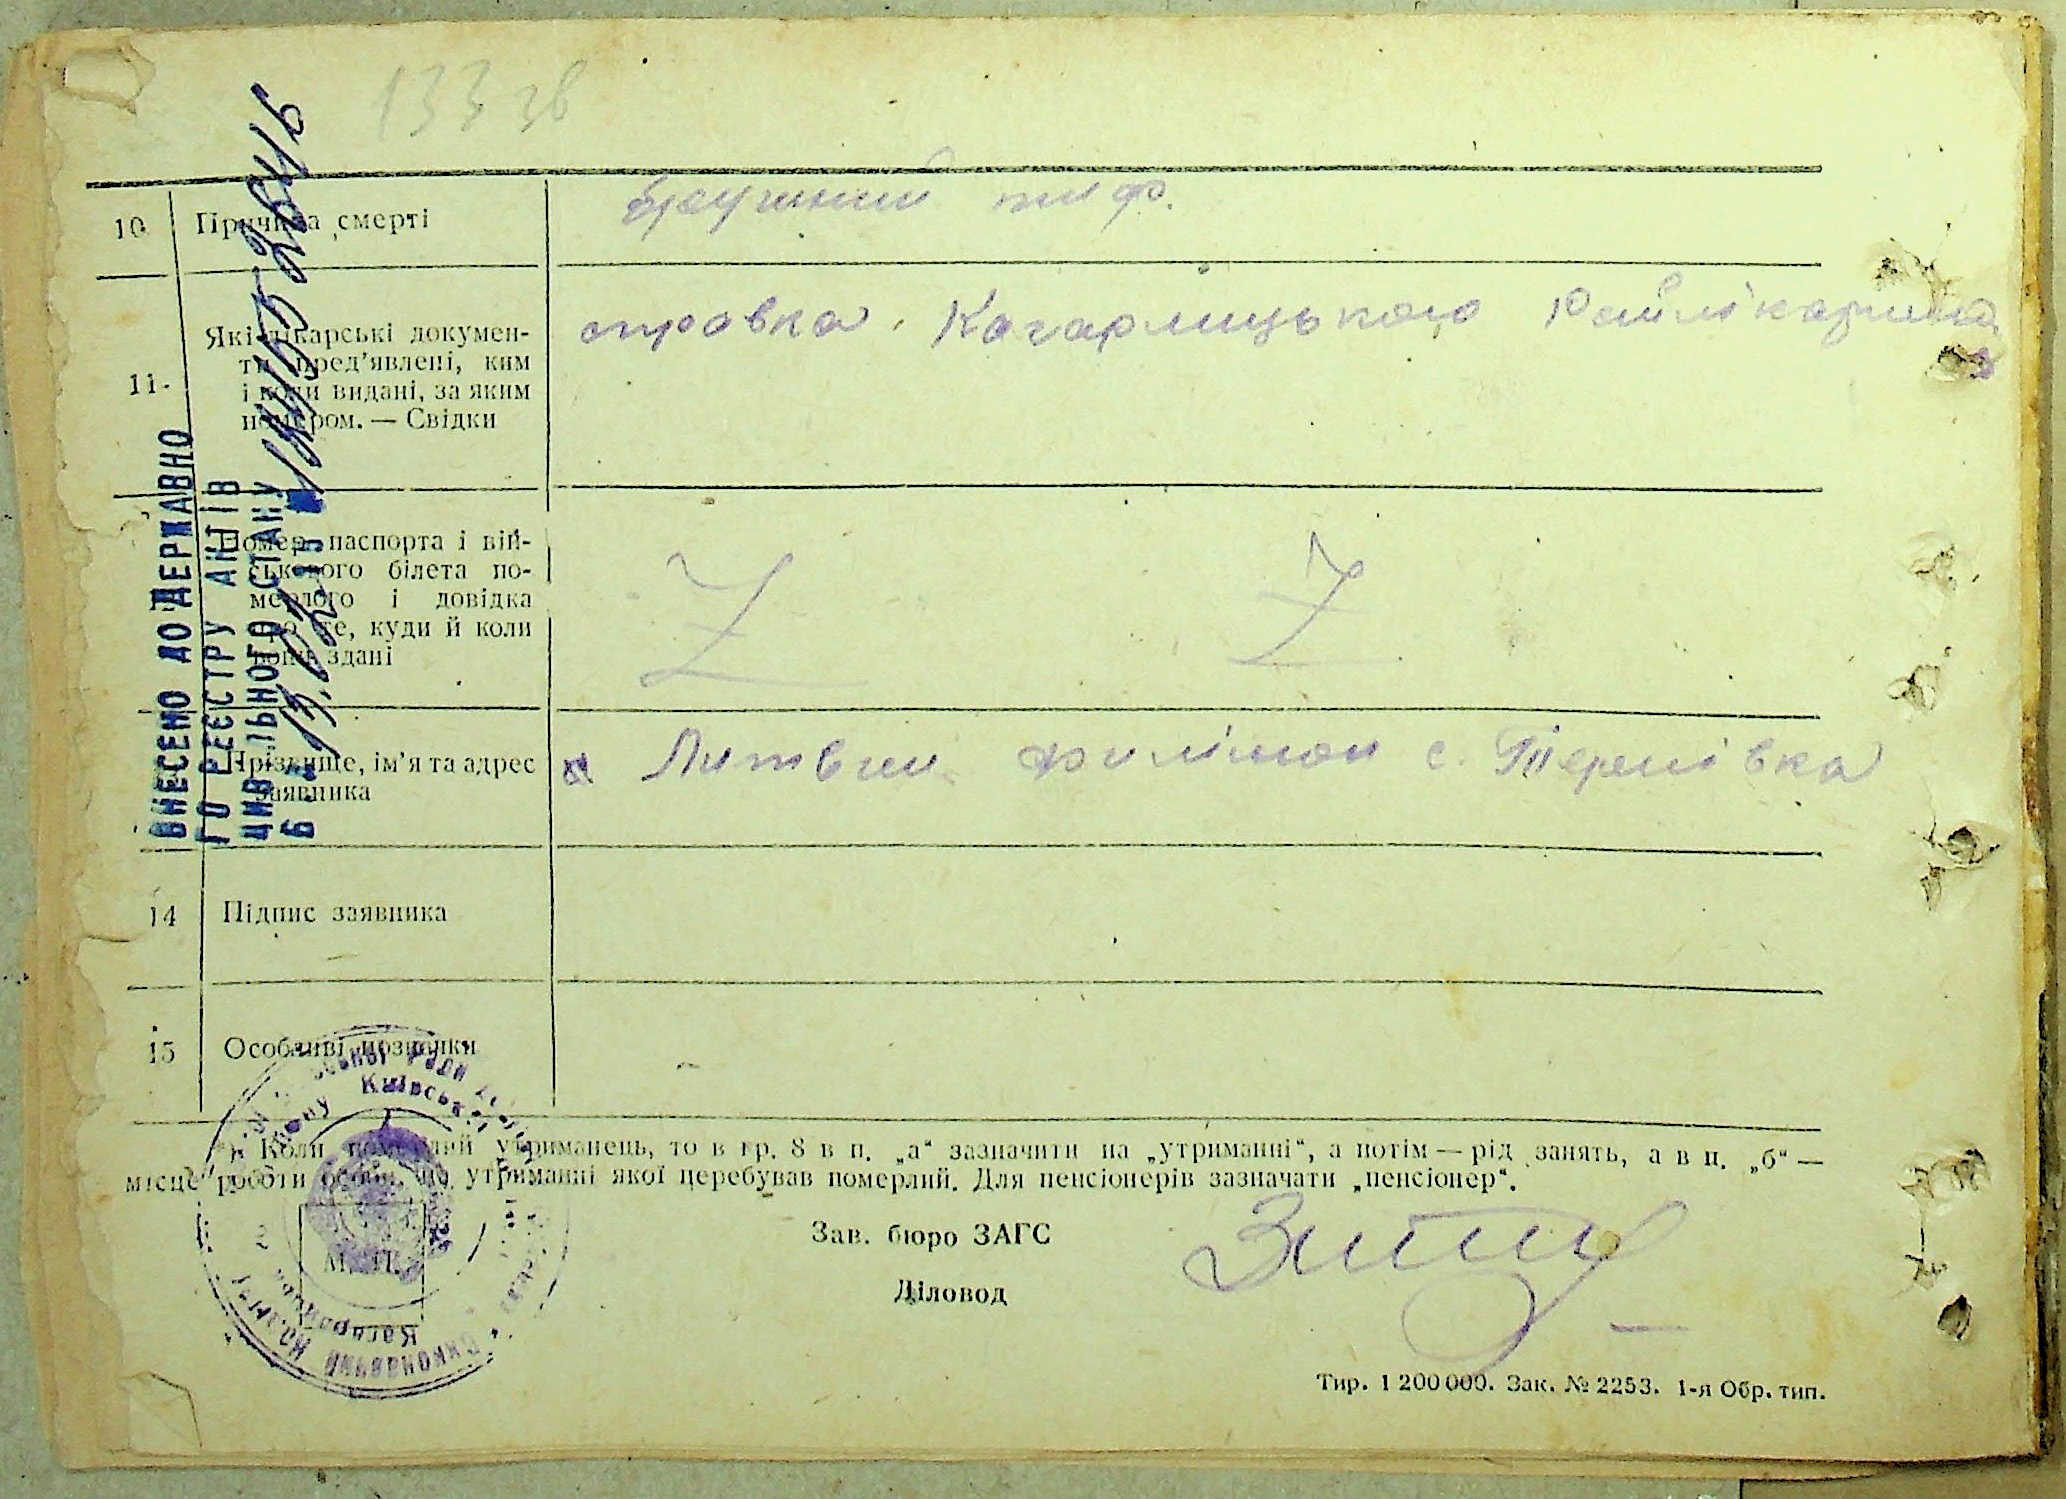 133 зв
10 Причина смерті брушний тиф.
11. Які лікарські докумен-
ти пред'явлені, ким
і коли видані, за яким
номером. — Свідки
справка Кагарлицького Райлікарні
Номер паспорта і вій-
ськового білета по-
мерлого і довідка
про те, куди й коли
вони здані
Z Z
Прізвище, ім'я та адрес
заявника
Литвин Филімон с. Тернівка
14 Підпис заявника
15 Особливі позначки
*) Коли померлий утриманець, то в гр. 8 в п. „а“ зазначити на „утриманні“, а потім — рід занять, а в п. „б“ —
місце роботи особи, на утриманні якої перебував померлий. Для пенсіонерів зазначати „пенсіонер“.
Зав. бюро ЗАГС
Діловод
М. П.
Тир. 1 200 000. Зак. № 2253. 1-я Обр. тип.
ВНЕСЕНО ДО ДЕРЖАВНО
ГО РЕЄСТРУ АКТІВ
ЦИВІЛЬНОГО СТАНУ
Київської